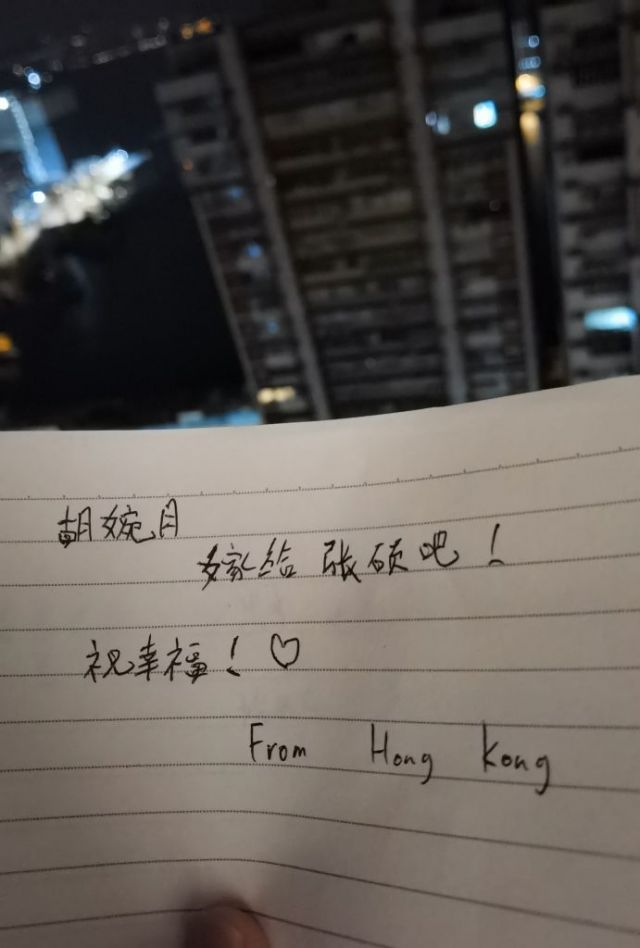 胡婉月
嫁给张硕吧！
祝幸福！♡
From Hong Kong